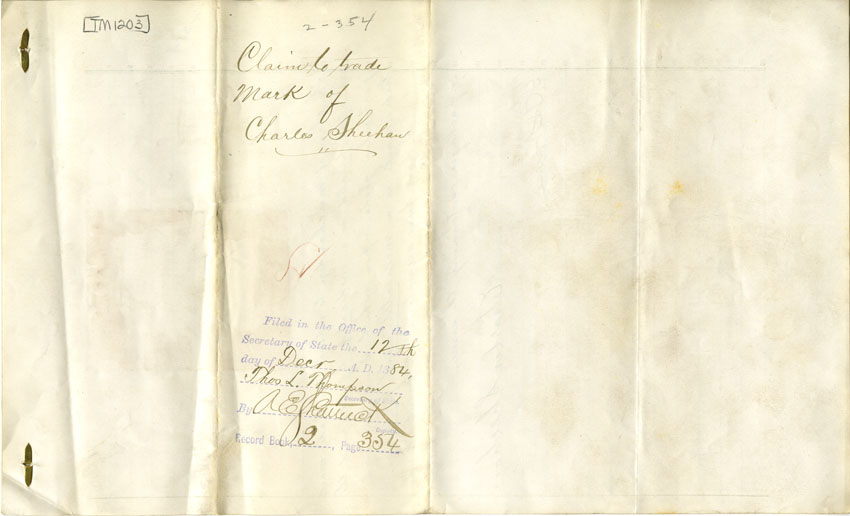 [TM1203]
2-354
Claim to trade
Mark of
Charles Sheehan
Filed in the Office of the
Secretary of State the 12th
day of Decr A. D. 1884,
Thos L. Thompson
By A E Shattuck
Record Book, 2, Page 354